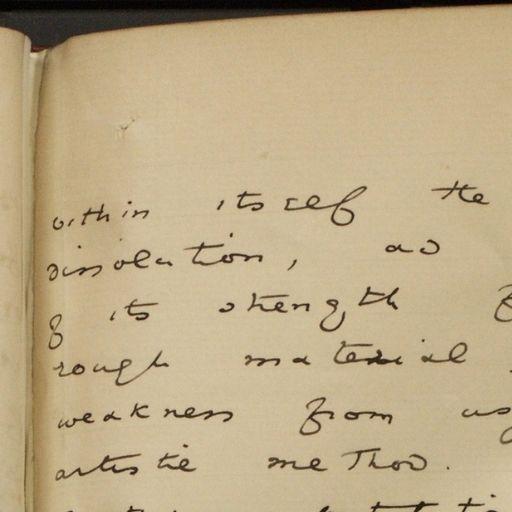 within itself the
dissolution, as
of its strength
rough material
weakness from
artistic method.